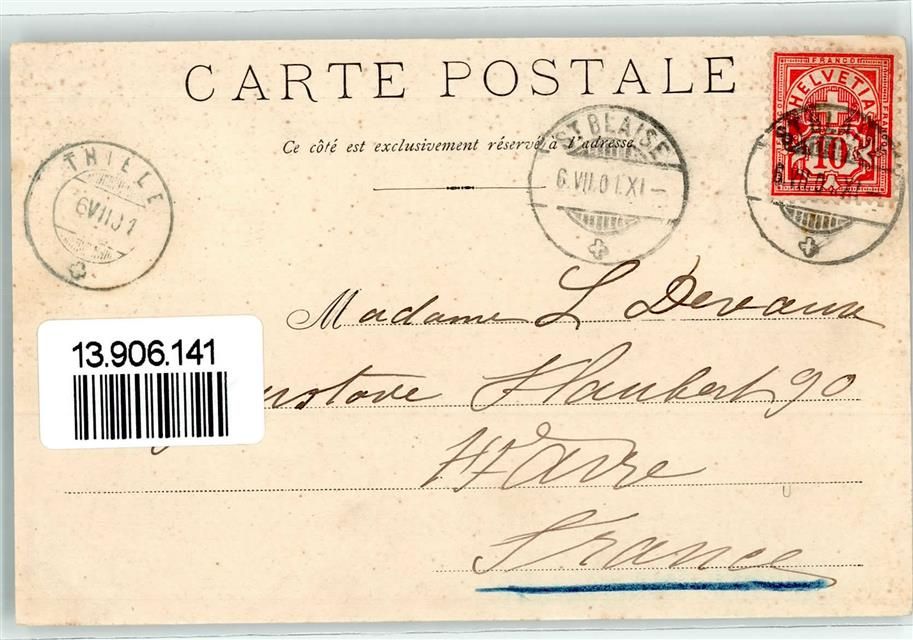 CARTE POSTALE
Ce côté est exclusivement réservé à l'adresse.
FRANCO
HELVETIA
FRANCO
10
ST BLAISE
6.VII.01.XI-
THIELLE
6VII01
Madame L Devaux
13.906.141
ustave Flaubert 90
Hâvre
France